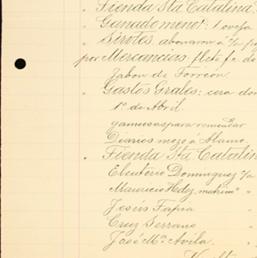 " Tienda Sta Catalina
" Ganado menor: 1 oveja
" Sirvtes abonaron á
por Mercancías, flete fe de
Jabon de Torreon
" Gastos Grales: cera
1º de Abril
gamusas para remendar
Diarios mozo á Alamo
" Tienda Sta Catalin
Eleuterio Dominguez
Mauricio Hdz
Jesús Tapia "
Cruz Serrano "
José Mª Avila "